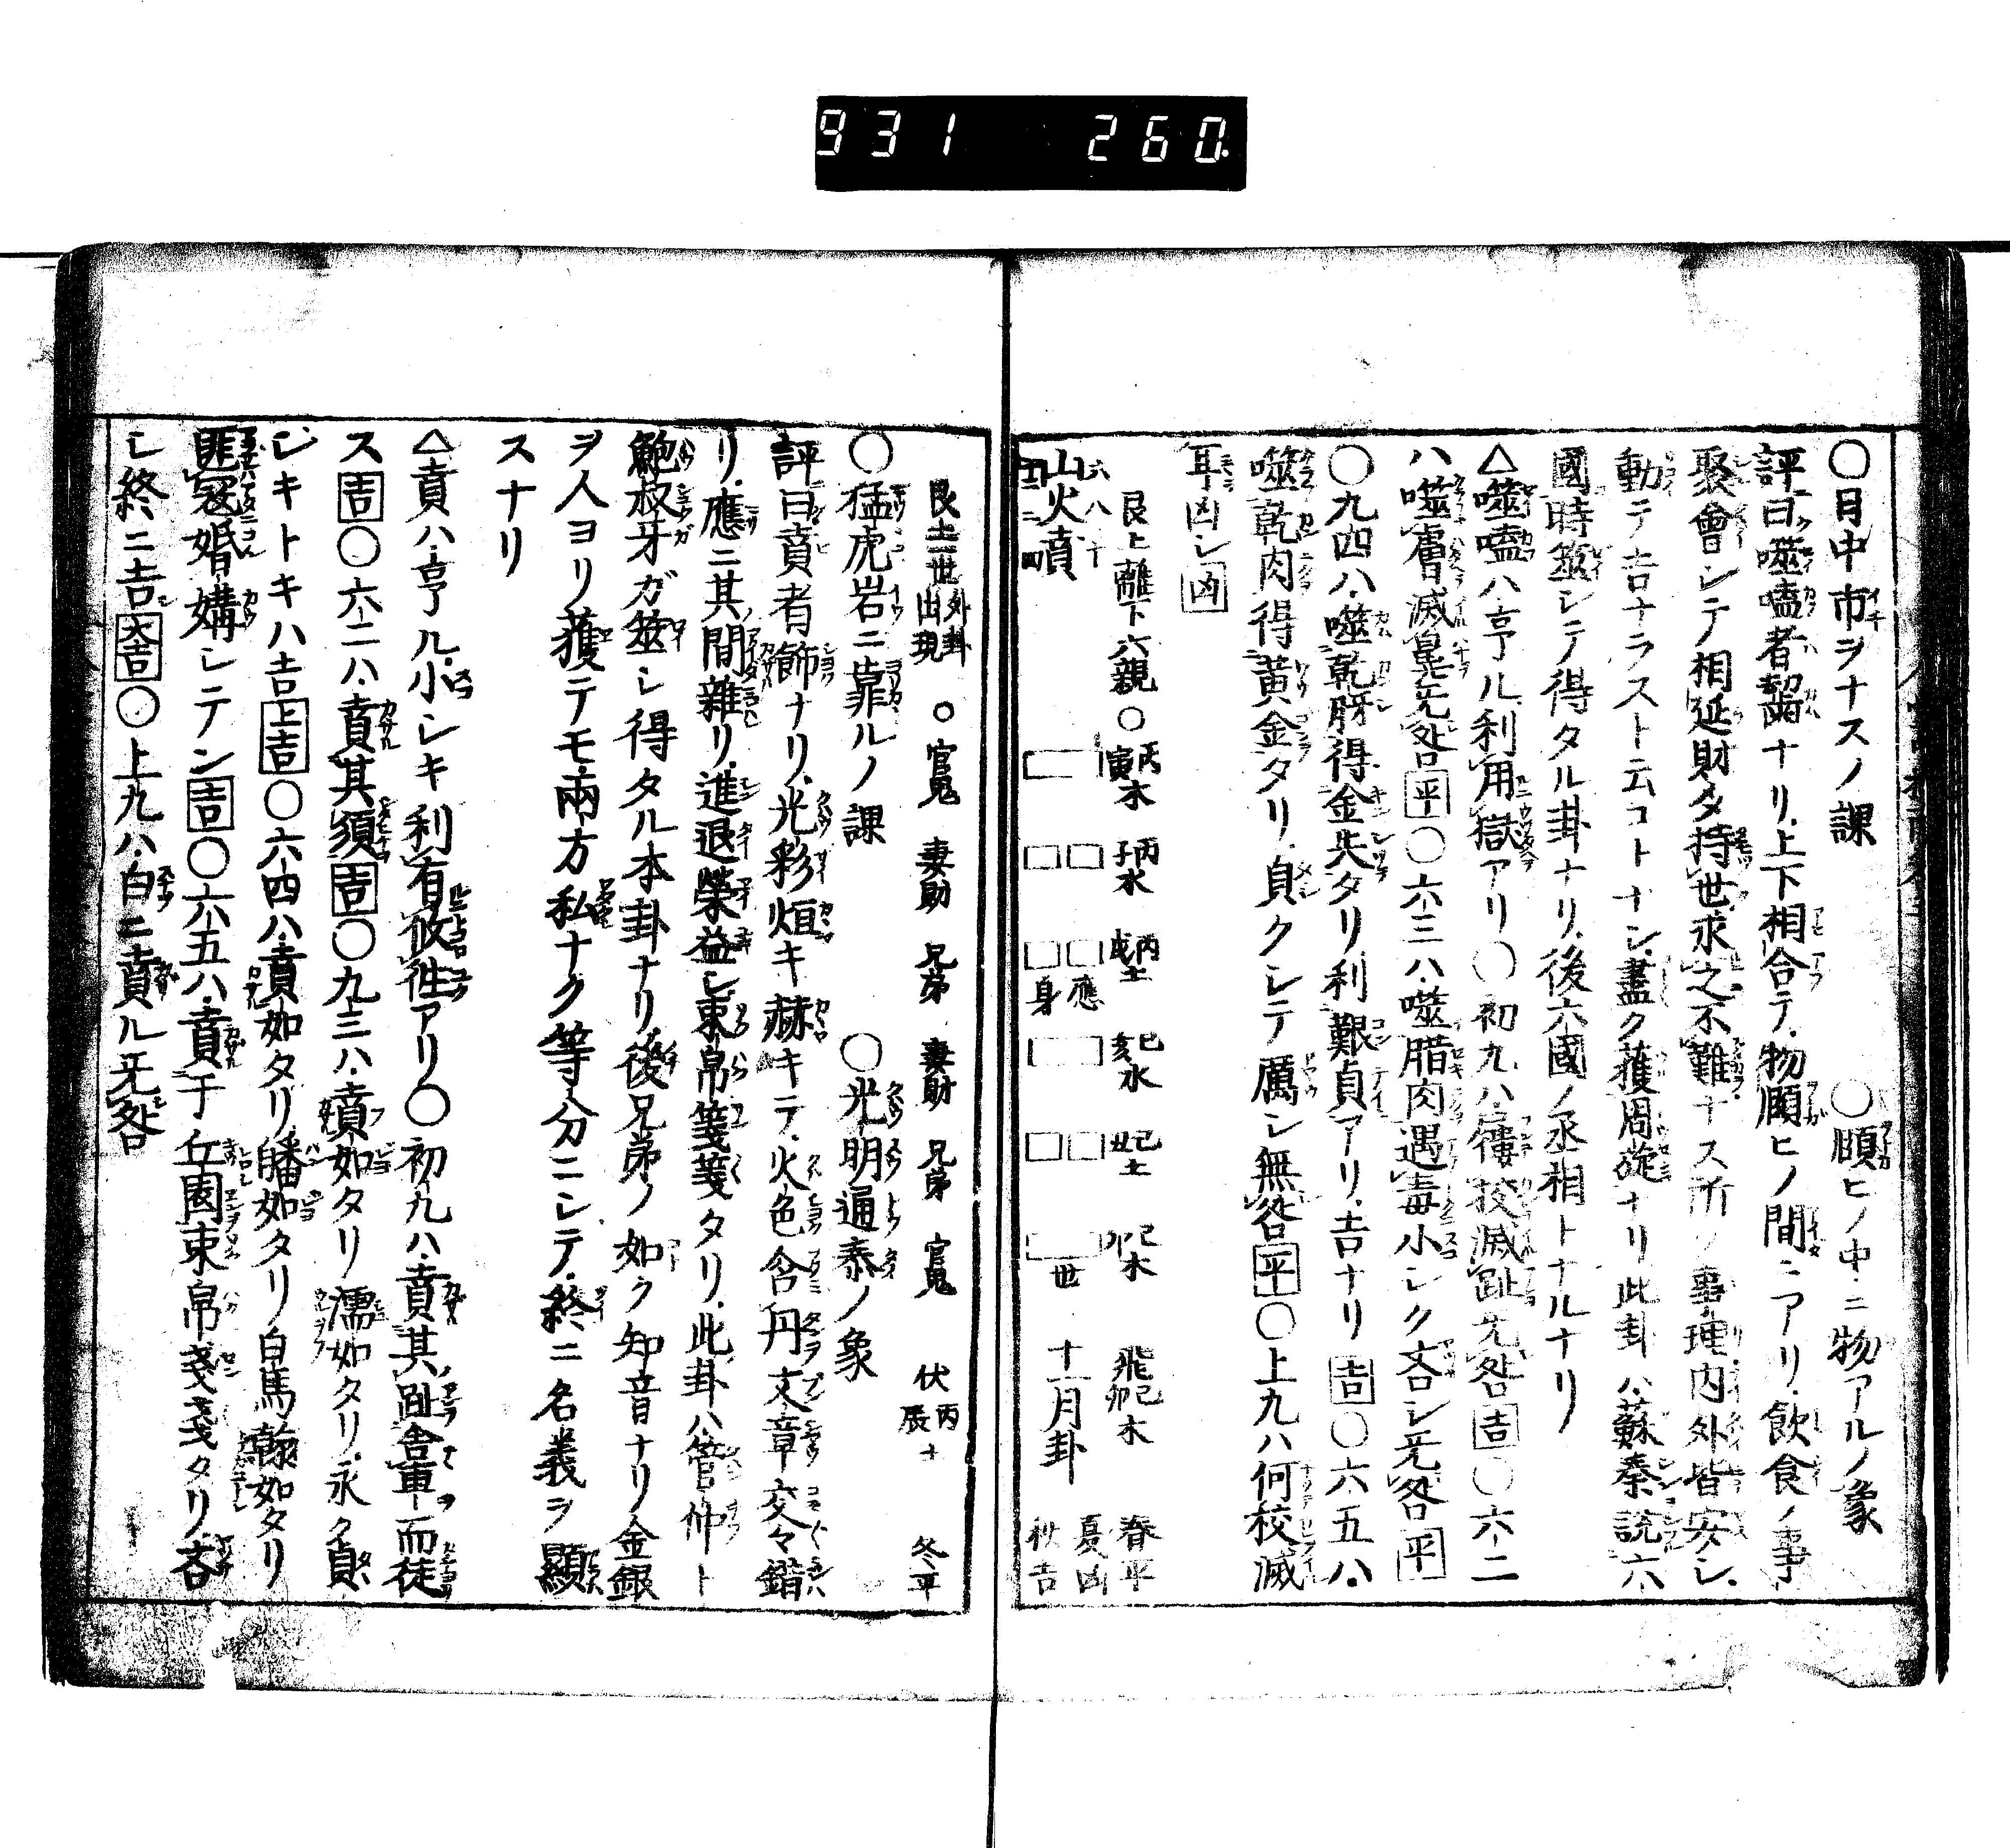 931 260
〇日中市ヲナスノ課 〇頤ヒノ中ニ物アルノ象
評曰噬嗑者齧ナリ上下相合テ物頤ヒノ間ニアリ飲食ノ事
聚會シテ相延財タ持世求之不難ナス所ノ事理内外皆安シ
動テ吉ナラスト云コトナシ盡ク獲周旋ナリ此卦ハ蘇秦説六
國時筮シテ得タル卦ナリ後六國ノ丞相トナルナリ
△噬嗑ハ亨ル利用獄アリ〇初九ハ屨校滅趾无咎吉〇六二
ハ噬膚滅鼻无咎平〇六三ハ噬腊肉遇毒小シク吝シ无咎平
〇九四ハ噬乾胏得金失タリ利艱貞アリ吉ナリ吉〇六五ハ
噬乾肉得黄金タリ貞クシテ厲シ無咎平〇上九ハ何校滅
耳凶シ凶
艮上離下六親〇 丙寅木 丙子水 丙戌土 己亥水 己丑土 己卯木 飛己卯木 春平
六八十 應 身 世 十一月卦 夏凶
山火賁 秋吉
艮土一世外卦出現 〇官鬼 妻財 兄弟 妻財 兄弟 官鬼 伏丙辰土 冬平
〇猛虎岩ニ靠ルノ課 〇光明通泰ノ象
評曰賁者飾ナリ光彩烜キ赫キテ火色含丹文章交々錯
リ應ニ其間雜リ進退榮益シ束帛箋箋タリ此卦ハ管仲ト
鮑叔牙ガ筮シ得タル本卦ナリ後兄弟ノ如ク知音ナリ金銀
ヲ人ヨリ獲テモ兩方私ナク等分ニシテ終ニ名義ヲ顯
スナリ
△賁ハ亨ル小シキ利有攸徃アリ〇初九ハ賁其趾舎車而徒
ス吉〇六二ハ賁其須吉〇九三ハ賁如タリ濡如タリ永ク貞
シキトキハ吉上吉〇六四ハ賁如タリ皤如タリ白馬翰如タリ
匪寇婚媾シテン吉〇六五ハ賁于丘園束帛戔戔タリ吝
シ終ニ吉大吉〇上九ハ白ニ賁ル无咎